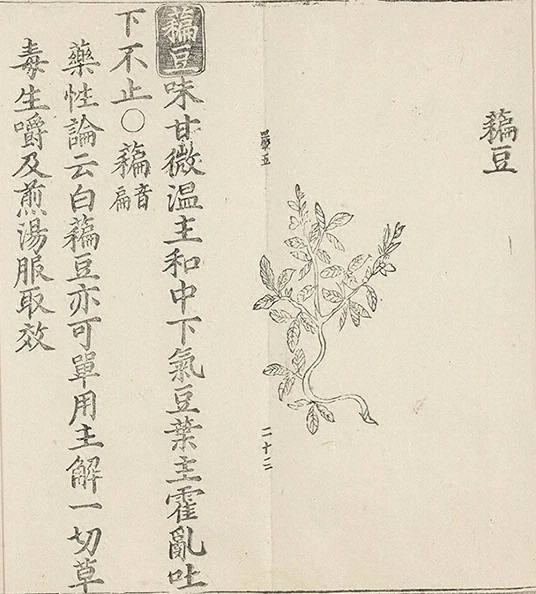 藊豆
二十二
藊豆味甘微溫主和中下氣豆葉主霍亂吐
下不止○藊音扁
藥性論云白藊豆亦可單用主解一切草
毒生嚼及煎湯服取效